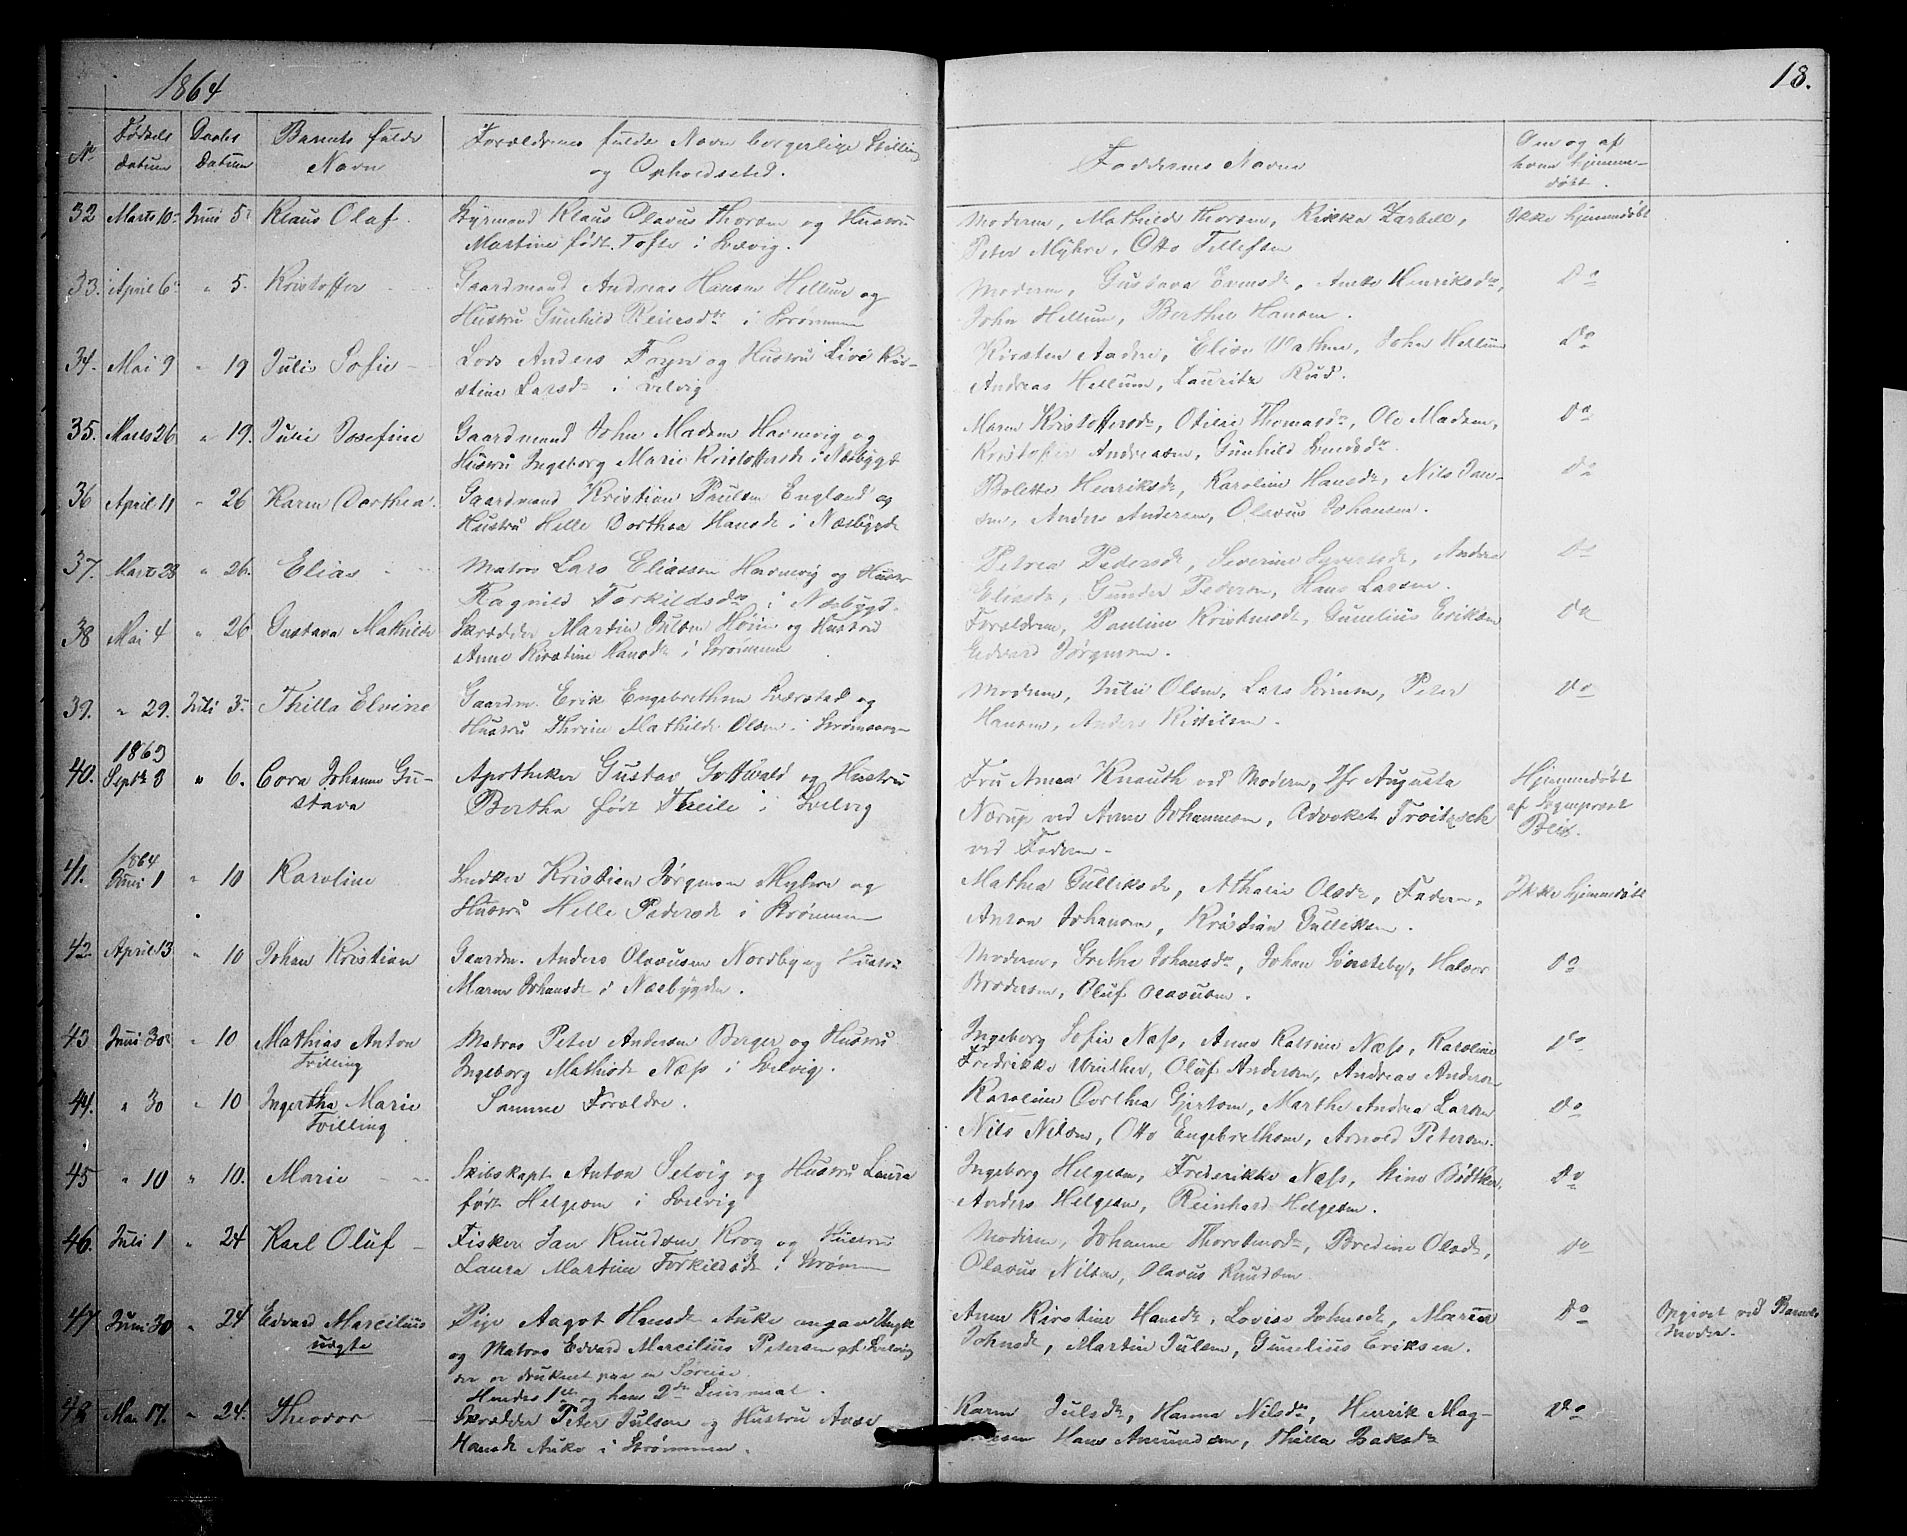 1864
18.
No
Fødsels Datum
Daabs Datum
Barnets fulde Navn
Forældrenes fulde Navn borgerlige Stilling og Opholdssted.
Faddernes Navne
Om og af hvem hjemmedøbt.
32 Marts 10 Juni 5 Klaus Olaf. Styrmand Klaus Olavus Thorsen og Hustru
Martine født Tofte i Svelvig.
Moderen, Mathilde Thorsen, Rikka Zarbell,
Peter Myhre, Otto Tellefsen
Ikke hjemmedøbt
33. April 6 " 5. Kristoffer Gaardmand Andreas Hansen Hellum og
Hustru Gunhild Reiersdtr i Strømmen
Moderen, Gustava Evensdr, Anne Henriksdr,
John Hellum, Berthe Hansen.
Do
34. Mai 9 " 19 Julie Sofie Lods Anders Foyn og Hustru Live Kir-
stine Larsdr i Svelvig
Kirsten, Elise Mathea, John Hellum
Andreas Hellum, Lauritz Rud.
Do
35. Marts 26 " 19. Julie Josefine Gaardmand John Madsen Havnevig og
Hustru Ingeborg Marie Kristoffersdr i Nesbygd
Maren Kristoffersdr, Otilie Thomasdr, Ole Madsen,
Kristofer Andreasen, Gunhild Svendsdr
Do
36 April 11 " 26 Karen Dorthea. Gaardmand Kristian Paulsen England og
Hustru Helle Dorthea Hansdr i Nesbygd
Bolette Henriksdr, Karoline Hansdr, Nils Jan-
sen, Anders Andersen, Olavus Johansen.
Do
37. Marts 28 " 26. Elias Matros Lars Eliassen Havnevig og Hustr
Ragnild Torkildsdr i Nesbygd.
Petrea Pedersdr, Severine Syversdr, Andrea
Eliasdr, Gunder Pedersen, Hans Larsen.
Do
38 Mai 4 " 26 Gustava Mathilde Skrædder Martin Julsen Høien og Hustru
Anne Kirstine Hansdr i Strømmen
Forældrene, Pauline Kristensdr, Gunelius Eriksen
Edvard Jørgensen.
Do
39. " 29. Juli 3 Thilla Elvine Gaardm. Erik Engebrethsen Sverstad og
Hustru Thrine Mathilde Olsen i Strømmen
Moderen, Julie Olsen, Lars Sørensen, Peter
Hansen, Anders Kittilsen.
Do
1863
40. Septr 3 " 6. Cora Johanne Gu-
stava
Apotheker Gustav Gottwald og Hustru
Bertha født Theile i Svelvig
Fru Anna Knauth ved Moderen, Jfr Augusta
Nærup ved Anne Johannesen, Advokat Troitzsch
ved Faderen
Hjemmedøbt
af Sognepræst
Blix.
1864
41. Juni 1 " 10 Karoline Snedker Kristian Jørgensen Myhre og
Hustru Helle Pedersdr i Strømmen
Mathea Gulliksdr, Athalie Olsdr, Faderen,
Anton Johansen, Kristian Gulliksen.
Ikke hjemmedøbt
42. April 13 " 10 Johan Kristian Gaardm. Anders Olavusen Nordby og Hustru
Maren Johansdr i Nesbygden.
Moderen, Grethe Johansdr, Johan Tørsteby, Halvor
Brodersen, Oluf Olavusen.
Do
43 Juni 30 " 10 Mathias Anton
Tvilling
Matros Peter Andersen Berger og Hustru
Ingeborg Mathisdr Næss i Svelvig.
Ingeborg Sofie Næss, Anne Katrine Næss, Karoline
Fredrikke Winther, Oluf Andersen, Andreas Andersen
Do
44. " 30 " 10 Ingertha Marie
Tvilling
Samme Forældre.
Karoline Dorthea Gjertsen, Marthe Andrea Larsen
Nils Nilsen, Otto Engebrethsen, Arnold Petersen.
Do
45 " 10 " 10. Marie Skibskapt. Anton Selvig og Hustru Laura
født Helgesen i Svelvig
Ingeborg Helgesen, Frederikke Næss, Stine Bødtker,
Anders Helgesen, Reinhard Helgesen.
Do
46. Juli 1 " 24 Karl Oluf Fisker Jan Knudsen Krog og Hustru
Laura Martine Torkildsdr i Strømmen
Moderen, Johanne Thorstensdr, Bredine Olsdr,
Olavus Nilsen, Olavus Knudsen
Do
47 Juni 30 " 24 Edvard Marcilius
uægte
Pige Aagot Hansdr Auke ungkarl
og Matros Edvard Marcilius Petersen af Svelvig
der er druknet paa en Søreise.
Hendes 1ste og hans 2det Leiermaal.
Anne Kirstine Hansdr, Lovise Johnsdr, Maren
Johnsdr, Martin Julsen, Gunelius Eriksen.
Do
Opgivet ved Barnets
Moder.
48 Mai 17. " 24. Theodor Skrædder Peter Julsen og Hustru Anne
Hansdr Auke i Strømmen.
Karen Julsdr, Hanna Nilsdr, Henrik Mag-
nusen Hans Amundsen, Thilla Isaksdr
Do